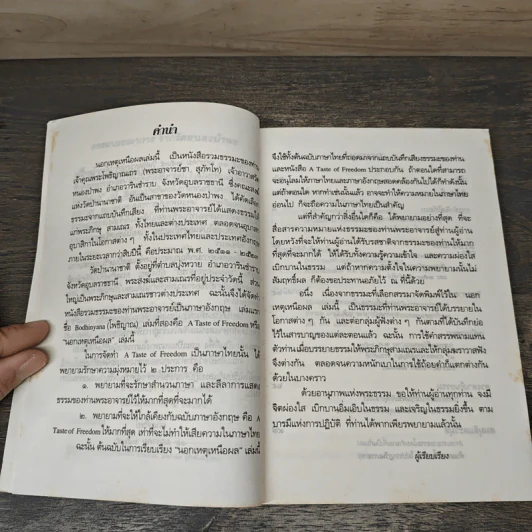 คำนำ
นอกเหตุเหนือผลเล่มนี้ เป็นหนังสือรวมธรรมะของท่าน
เจ้าคุณพระโพธิญาณเถร (พระอาจารย์ชา สุภัทโท) เจ้าอาวาสวัด
หนองป่าพง อำเภอวารินชำราบ จังหวัดอุบลราชธานี ซึ่งคณะสงฆ์
แห่งวัดป่านานาชาติ อันเป็นสาขาของวัดหนองป่าพง ได้คัดเลือก
ธรรมะจากแถบบันทึกเสียง ที่ท่านพระอาจารย์ได้แสดงธรรมโปรด
แก่พระภิกษุ สามเณร ทั้งไทยและต่างประเทศ ตลอดจนอุบาสก
อุบาสิกาในโอกาสต่าง ๆ ทั้งในประเทศไทยและประเทศอังกฤษ
ภายในระยะเวลากว่าสิบปีนี้ คือประมาณ พ.ศ.
วัดป่านานาชาติ ตั้งอยู่ที่ตำบลบุ่งหวาย อำเภอวารินชำราบ
จังหวัดอุบลราชธานี พระสงฆ์และสามเณรที่อยู่ประจำวัดนี้ ส่วน
ใหญ่เป็นพระภิกษุและสามเณรชาวต่างประเทศ ฉะนั้นจึงได้จัดทำ
หนังสือธรรมะของท่านพระอาจารย์เป็นภาษาอังกฤษ เล่มแรก
ชื่อ Bodhinyana (โพธิญาณ) เล่มที่สองคือ A Taste of Freedom หรือ
"นอกเหตุเหนือผล" เล่มนี้
ในการจัดทำ A Taste of Freedom เป็นภาษาไทยนั้น ได้
พยายามรักษาความมุ่งหมายไว้ ๒ ประการ คือ
๑. พยายามที่จะรักษาสำนวนภาษา และลีลาการแสดง
ธรรมของท่านพระอาจารย์ไว้ให้มากที่สุดที่จะมากได้
๒. พยายามที่จะให้ใกล้เคียงกับฉบับภาษาอังกฤษ คือ A
Taste of Freedom ให้มากที่สุด เท่าที่จะไม่ทำให้เสียความในภาษาไทย
ฉะนั้น ต้นฉบับในการเรียบเรียง "นอกเหตุเหนือผล" เล่มนี้
จึงใช้ทั้งต้นฉบับภาษาไทยที่ถอดมาจากแถบบันทึกเสียงธรรมะของท่าน
และหนังสือ A Taste of Freedom ประกอบกัน ถ้าตอนใดที่สามารถ
จะอนุโลมให้ภาษาไทยและภาษาอังกฤษสอดคล้องกันไปได้ก็ทำดังนั้น
แต่ถ้าตอนใด หากทำเช่นนั้นแล้ว อาจจะทำให้ความหมายในภาษาไทย
อ่อนไป ก็จะถือความในภาษาไทยเป็นสำคัญ
แต่ที่สำคัญกว่าสิ่งอื่นใดก็คือ ได้พยายามอย่างที่สุด ที่จะ
สื่อสารความหมายแห่งธรรมะของท่านพระอาจารย์สู่ท่านผู้อ่าน
โดยหวังที่จะให้ท่านผู้อ่านได้รับรสชาติจากธรรมะของท่านให้มาก
ที่สุดที่จะมากได้ ให้ได้รับทั้งความรู้ความเข้าใจ และความผ่องใส
เบิกบานในธรรม แต่ถ้าหากความตั้งใจในความพยายามนั้นไม่
สัมฤทธิ์ผล ก็ต้องขอประทานอภัยไว้ ณ ที่นี้ด้วย
อนึ่ง เนื่องจากธรรมะที่เลือกสรรมาจัดพิมพ์ไว้ใน นอก
เหตุเหนือผล เล่มนี้ เป็นธรรมะที่ท่านพระอาจารย์ได้บรรยายใน
โอกาสต่าง ๆ กัน และต่อกลุ่มผู้ฟังต่าง ๆ กันตามที่ได้บันทึกย่อ
ไว้ในสารบาญของแต่ละตอนแล้ว ฉะนั้น การใช้คำสรรพนามแทน
ตัวท่าน เมื่อบรรยายธรรมให้พระภิกษุสามเณรและให้กลุ่มฆราวาสฟัง
จึงต่างกัน ตลอดจนความหนักเบาในการใช้ถ้อยคำก็แตกต่างกัน
ด้วยในบางคราว
ด้วยอานุภาพแห่งพระธรรม ขอให้ท่านผู้อ่านทุกท่าน จงมี
จิตผ่องใส เบิกบานอิ่มเอิบในธรรม และเจริญในธรรมยิ่งขึ้น ตาม
บารมีแห่งการปฏิบัติ ที่ท่านได้พากเพียรพยายามแล้วนั้น
ผู้เรียบเรียง